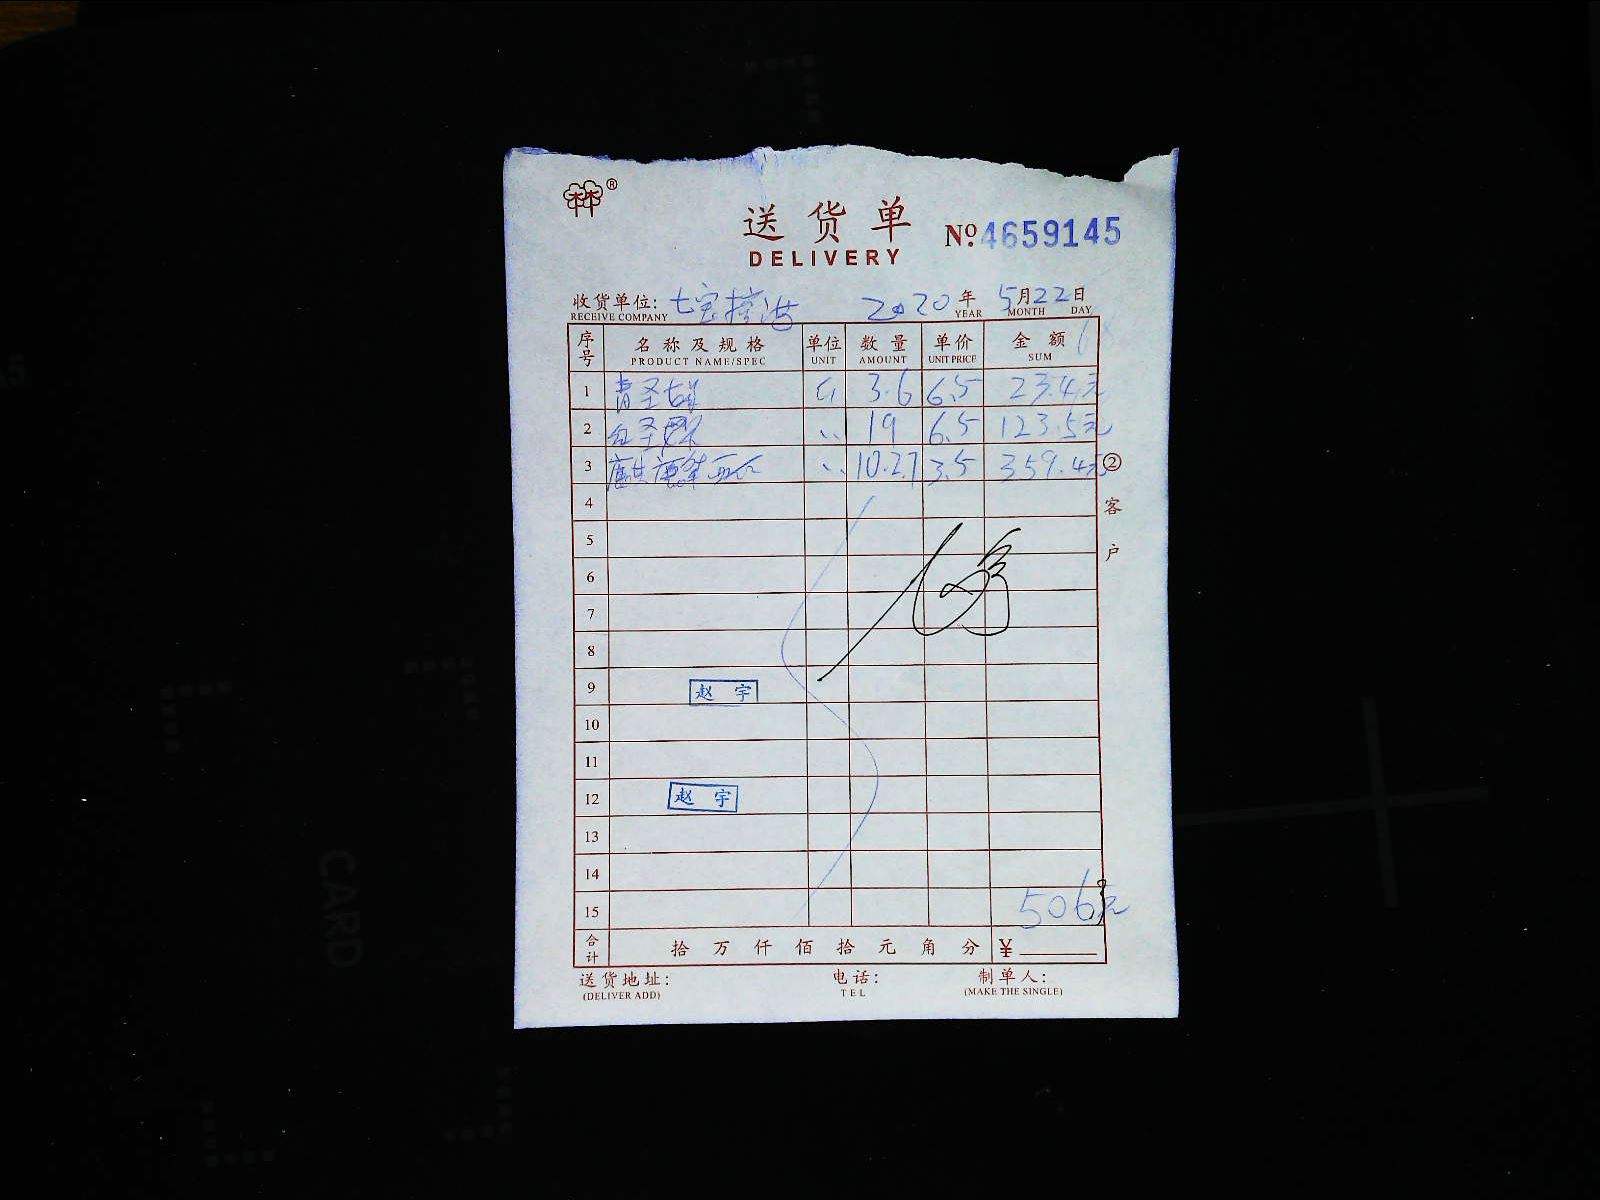 ®
送货单
DELIVERY
№ 4659145
收货单位: 七宝 2020年 5月22日
RECEIVE COMPANY YEAR MONTH DAY
序号 名称及规格 单位 数量 单价 金额
PRODUCT NAME/SPEC UNIT AMOUNT UNIT PRICE SUM
1 3.6 6.5 23.4元
2 19 6.5 123.5元
3 3.5 359.4元
② 客户
4
5
6
7
8
9 赵宇
10
11
12 赵宇
13
14
15 506元
合计 拾 万 仟 佰 拾 元 角 分 ¥
送货地址: 电话: 制单人:
(DELIVER ADD) TEL (MAKE THE SINGLE)
CARD